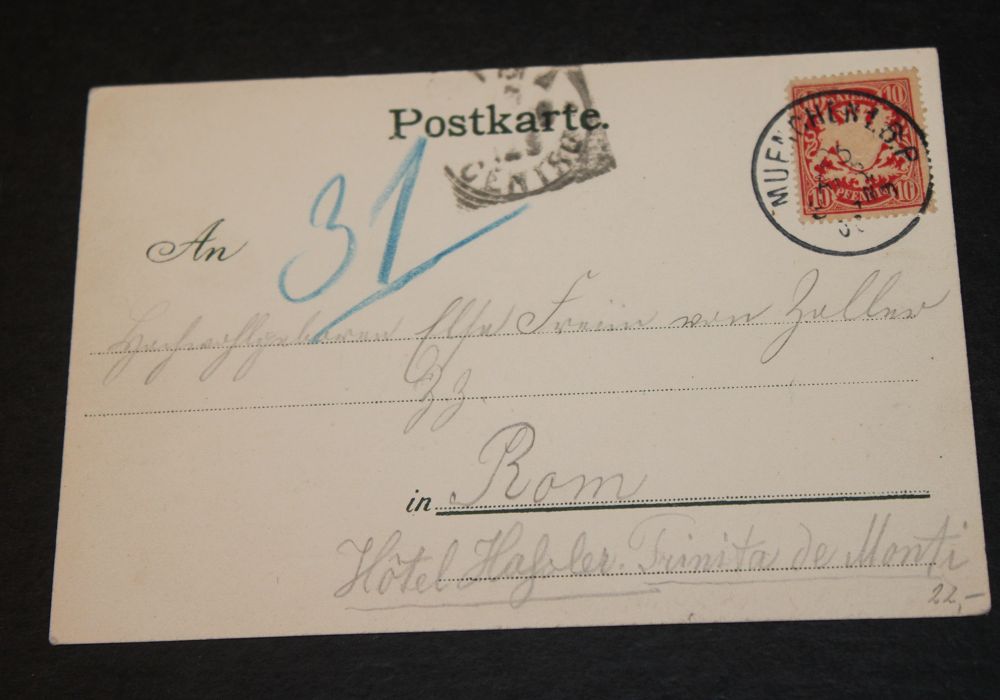 Postkarte.
CENTRO
MUENCHEN 1.B.P.
10 10
10 PFENNIG 10
31
An
Hochwohlgeboren Elsa Freiin von Zoller
Zz.
in Rom
Hôtel Hassler. Trinita de Monti
22,-